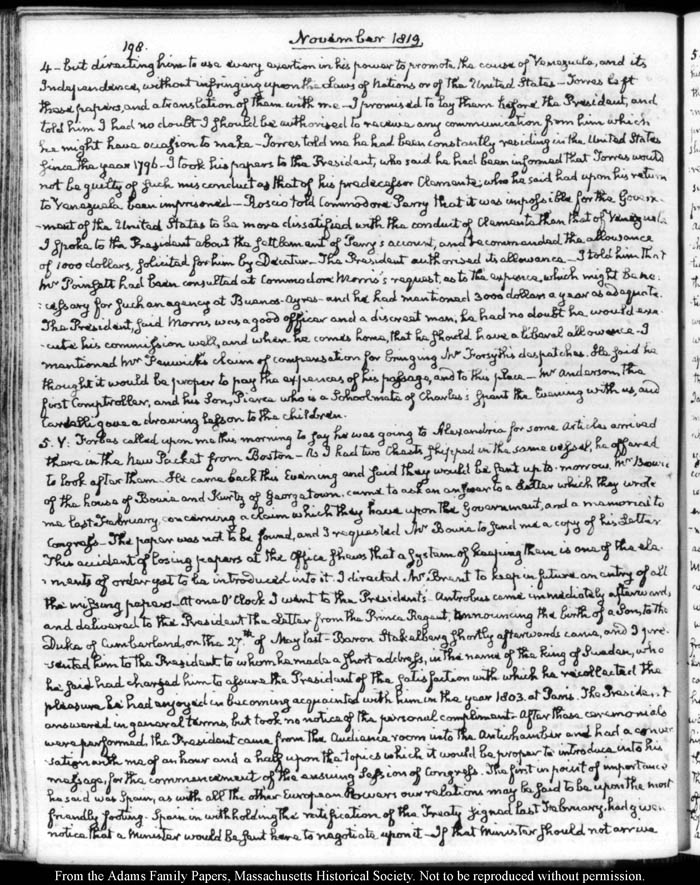 198.
November 1819.
4 - but directing him to use every exertion in his power to promote the cause of Venezuela, and its
Independence, without infringing upon the laws of Nations or of the United States - Torres left
these papers, and a translation of them with me - I promised to lay them before the President, and
told him I had no doubt I should be authorised to receive any communication from him which
he might have occasion to make - Torres told me he had been constantly residing in the United States
since the year 1796 - I took his papers to the President, who said he had been informed that Torres would
not be guilty of such misconduct as that of his predecessor Clemente; who he said had upon his return
to Venezuela been imprisoned - Roscio told Commodore Perry that it was impossible for the Govern-
-ment of the United States to be more dissatisfied with the conduct of Clemente than that of Venezuela
I spoke to the President about the settlement of Perry's account, and recommended the allowance
of 1000 dollars, solicited for him by Decatur - The President authorised its allowance - I told him that
Mr Poinsett had been consulted at Commodore Morris's request, as to the expence, which might be ne-
:cessary for such an agency at Buenos-Ayres - and he had mentioned 3000 dollars a year as adequate.
The President, said Morris was a good officer and a discreet man, he had no doubt he would exe-
-cute his commission well, and when he comes home, that he should have a liberal allowance - I
mentioned Mr Fenwick's claim of compensation for bringing Mr Forsyth's despatches. He said he
thought it would be proper to pay the expences of his passage, and to this place - Mr Anderson, the
first Comptroller, and his Son, Pierce who is a Schoolmate of Charles's spent the Evening with us, and
Cardelli gave a drawing lesson to the children.
5. V. Forbes called upon me this morning to say he was going to Alexandria for some articles arrived
there in the New Packet from Boston - As I had two Chests shipped in the same vessel, he offered
to look after them - He came back this Evening and said they would be sent up to-morrow. Mr Bowie
of the house of Bowie and Kurtz of Georgetown, came to ask an answer to a Letter which they wrote
me last February, concerning a claim which they have upon the Government, and a memorial to
Congress - The paper was not to be found, and I requested Mr Bowie to send me a copy of his Letter
This accident of losing papers at the Office shews that a system of keeping them is one of the ele-
:ments of order yet to be introduced into it. I directed Mr Brent to keep in future an entry of all
the missing papers - At one O'Clock I went to the President's - Antrobus came immediately afterwards
and delivered to the President the Letter from the Prince Regent, announcing the birth of a Son, to the
Duke of Cumberland, on the 27th of May last - Baron Stakelberg shortly afterwards came, and I pre-
-sented him to the President to whom he made a short address, in the name of the King of Sweden, who
he said had charged him to assure the President of the satisfaction with which he recollected the
pleasure he had enjoyed in becoming acquainted with him in the year 1803. at Paris. The President
answered in general terms, but took no notice of the personal compliment - After these ceremonials
were performed, the President came from the Audience room into the Antichamber and had a conver-
-sation with me of an hour and a half upon the topics which it would be proper to introduce into his
message, for the commencement of the ensuing Session of Congress. The first in point of importance
he said was Spain, as with all the other European Powers our relations may be said to be upon the most
friendly footing - Spain in withholding the ratification of the Treaty signed last February, had given
notice that a Minister would be sent here to negotiate upon it - If that Minister should not arrive
From the Adams Family Papers, Massachusetts Historical Society. Not to be reproduced without permission.